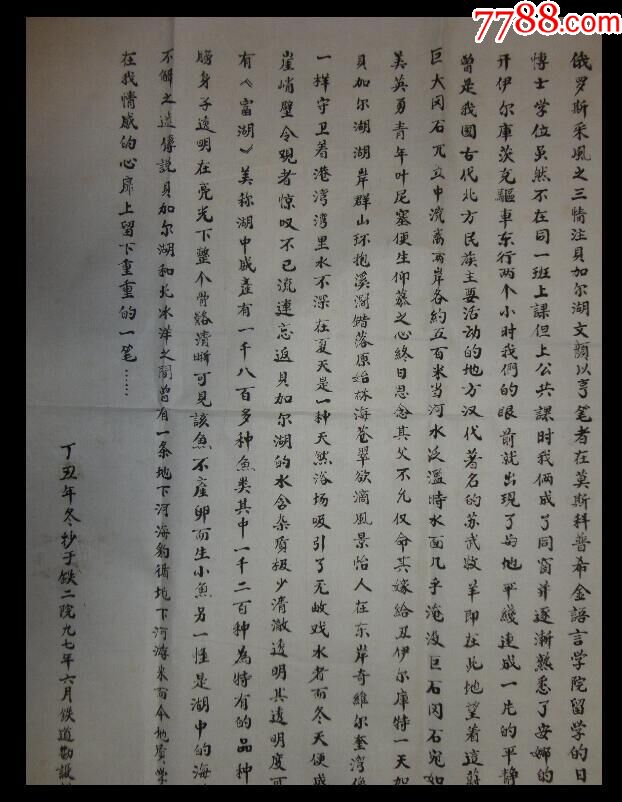 7788.com
俄罗斯采风之三情注贝加尔湖文颜以亨笔者在莫斯科普希金語言学院留学的日
博士学位虽然不在同一班上課但上公共課时我俩成了同窗并逐漸熟悉了安娜的
开伊尔庫茨克驅車东行两个小时我們的眼前就出現了与地平綫連成一片的平静
曾是我國古代北方民族主要活动的地方汉代著名的苏武牧羊即在此地望着這蔚
巨大冈石兀立中流离两岸各約五百米当河水泛滥時水面几乎淹没巨石冈石宛如
美英勇青年叶尼塞便生仰慕之心終日思念其父不允仅命其嫁給丑伊尔庫特一天加
貝加尔湖湖岸群山环抱溪澗錯落原始林海苍翠欲滴風景怡人在东岸奇維尔奎湾像
一样守卫着港湾湾里水不深在夏天是一种天然浴场吸引了无故戏水者而冬天便成
崖峭壁令現者惊叹不已流連忘返貝加尔湖的水含杂质极少清澈透明其透明度可
有《富湖》美称湖中咸產有一千八百多种魚类其中一千二百种為特有的品种
身子透明在亮光下整个骨骼清晰可見該魚不產卵而生小魚另一怪是湖中的海
不解之迷傳説貝加尔湖和北冰洋之間曾有一条地下河海豹循地下河游来而今地质学
在我情感的心扉上留下重重的一笔……
丁丑年冬抄于铁二院九七年六月铁道勘設